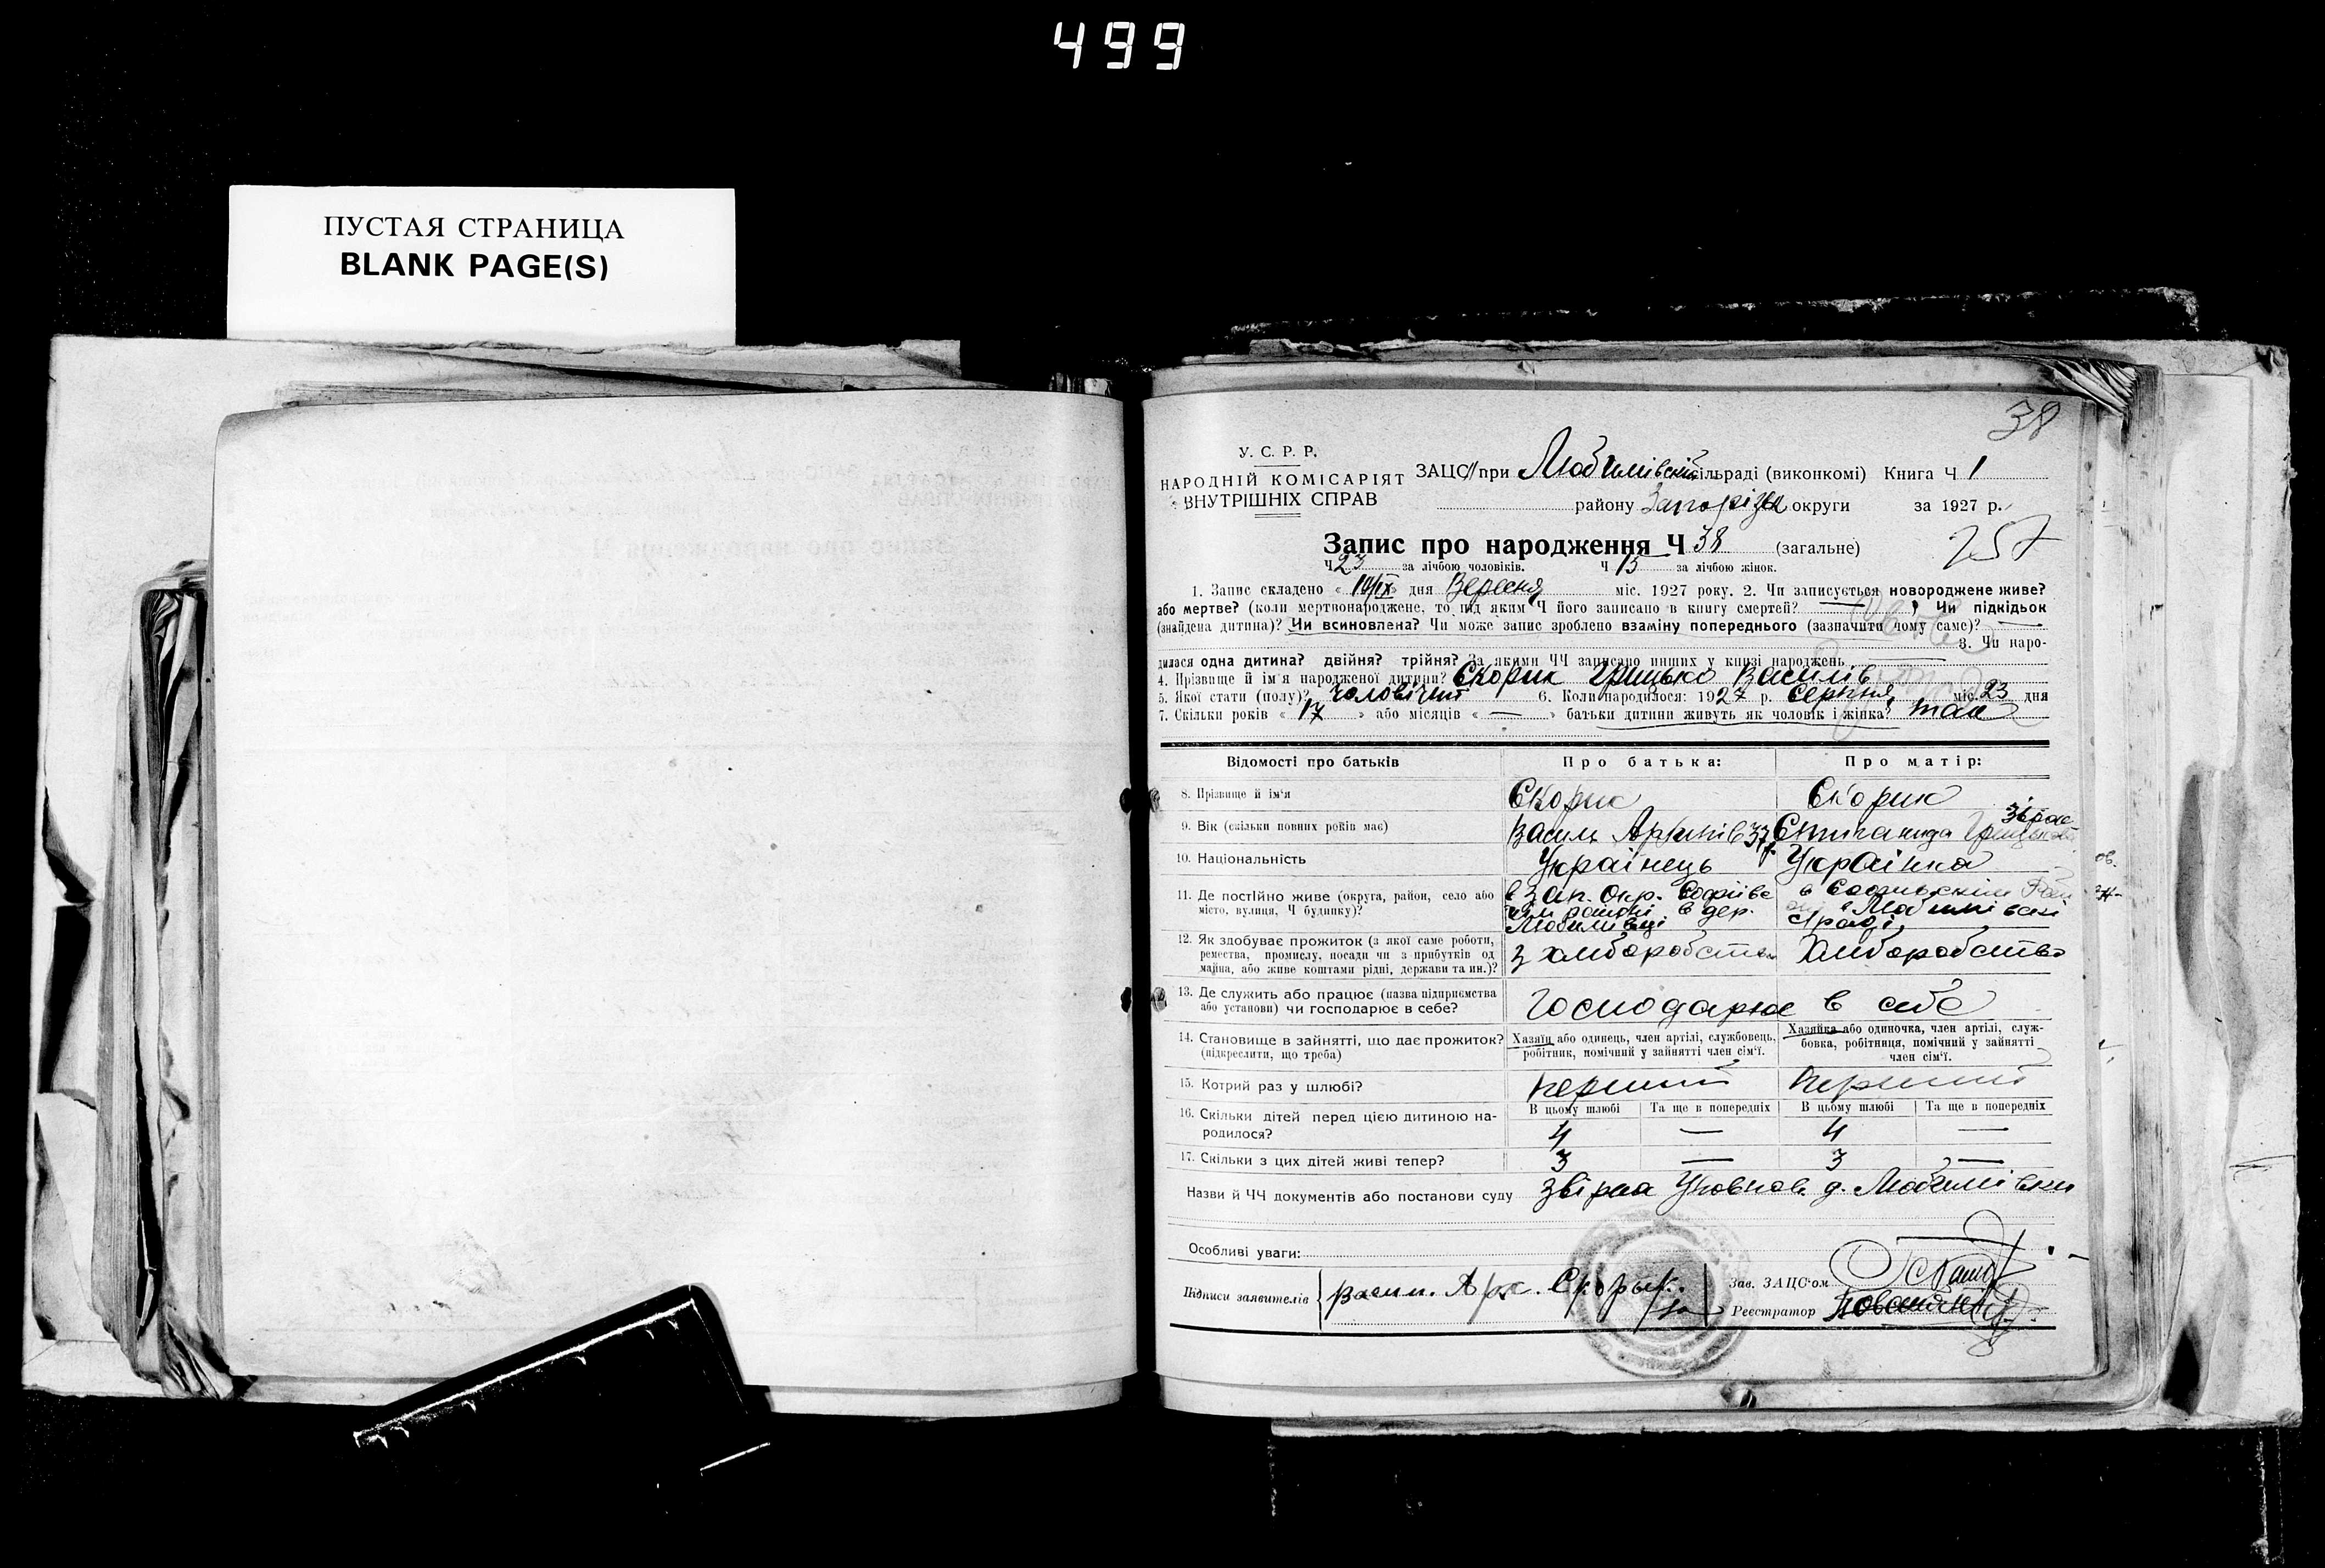 499
ПУСТАЯ СТРАНИЦА
BLANK PAGE(S)
38
У. С. Р. Р.
НАРОДНІЙ КОМІСАРІЯТ
ВНУТРІШНІХ СПРАВ
ЗАЦС при Любимівській сільраді (виконкомі) Книга Ч 1
району Запорізьк округи за 1927 р.
Запис про народження Ч 38 (загальне)
257
Ч 23 за лічбою чоловіків. Ч 15 за лічбою жінок.
1. Запис складено « 10/ІХ » дня Вересня міс. 1927 року. 2. Чи записується новороджене живе?
або мертве? (коли мертвонароджене, то під яким Ч його записано в книгу смертей? — Чи підкідьок
(знайдена дитина)? Чи всиновлена? Чи може запис зроблено взаміну попереднього (зазначити чому саме)? —
3. Чи наро-
дилася одна дитина? двійня? трійня? За якими ЧЧ записано инших у книзі народжень
4. Прізвище й ім'я народженої дитини? Скорик Грицько Василів
5. Якої стати (полу)? Чоловічит 6. Коли народилося: 1927 р. Серпня міс. 23 дня
7. Скільки років « 17 » або місяців « — » батьки дитини живуть як чоловік і жінка? так
Відомості про батьків Про батька: Про матір:
8. Прізвище й ім'я Скорик Скорик
9. Вік (скільки повних років має) Василь 37 р.
10. Національність Українець Українка
11. Де постійно живе (округа, район, село або
місто, вулиця, Ч будинку)?
в Зап. Окр. Софіїве
кім районі в дер.
Любимівці
в Софиевскім
в Любимівскі
Сраді
12. Як здобуває прожиток (з якої саме роботи,
ремества, промислу, посади чи з прибутків од
майна, або живе коштами рідні, держави та ин.)?
З хліборобства Хліборобство
13. Де служить або працює (назва підприємства
або установи) чи господарює в себе?
Господарює в себе
14. Становище в зайнятті, що дає прожиток?
(підкреслити, що треба)
Хазяїн або одинець, член артілі, службовець,
робітник, помічний у зайнятті член сім'ї.
Хазяйка або одиночка, член артілі, служ-
бовка, робітниця, помічний у зайнятті
член сім'ї.
15. Котрий раз у шлюбі? перший перший
16. Скільки дітей перед цією дитиною на-
родилося?
В цьому шлюбі Та ще в попередніх В цьому шлюбі Та ще в попередніх
4 — 4 —
17. Скільки з цих дітей живі тепер? 3 — 3 —
Назви й ЧЧ документів або постанови суду Звірка Уповнов. д. Любимівки
Особливі уваги:
Підписи заявителів Васил. Арх. Скорык.
Зав. ЗАЦС'ом
Реєстратор